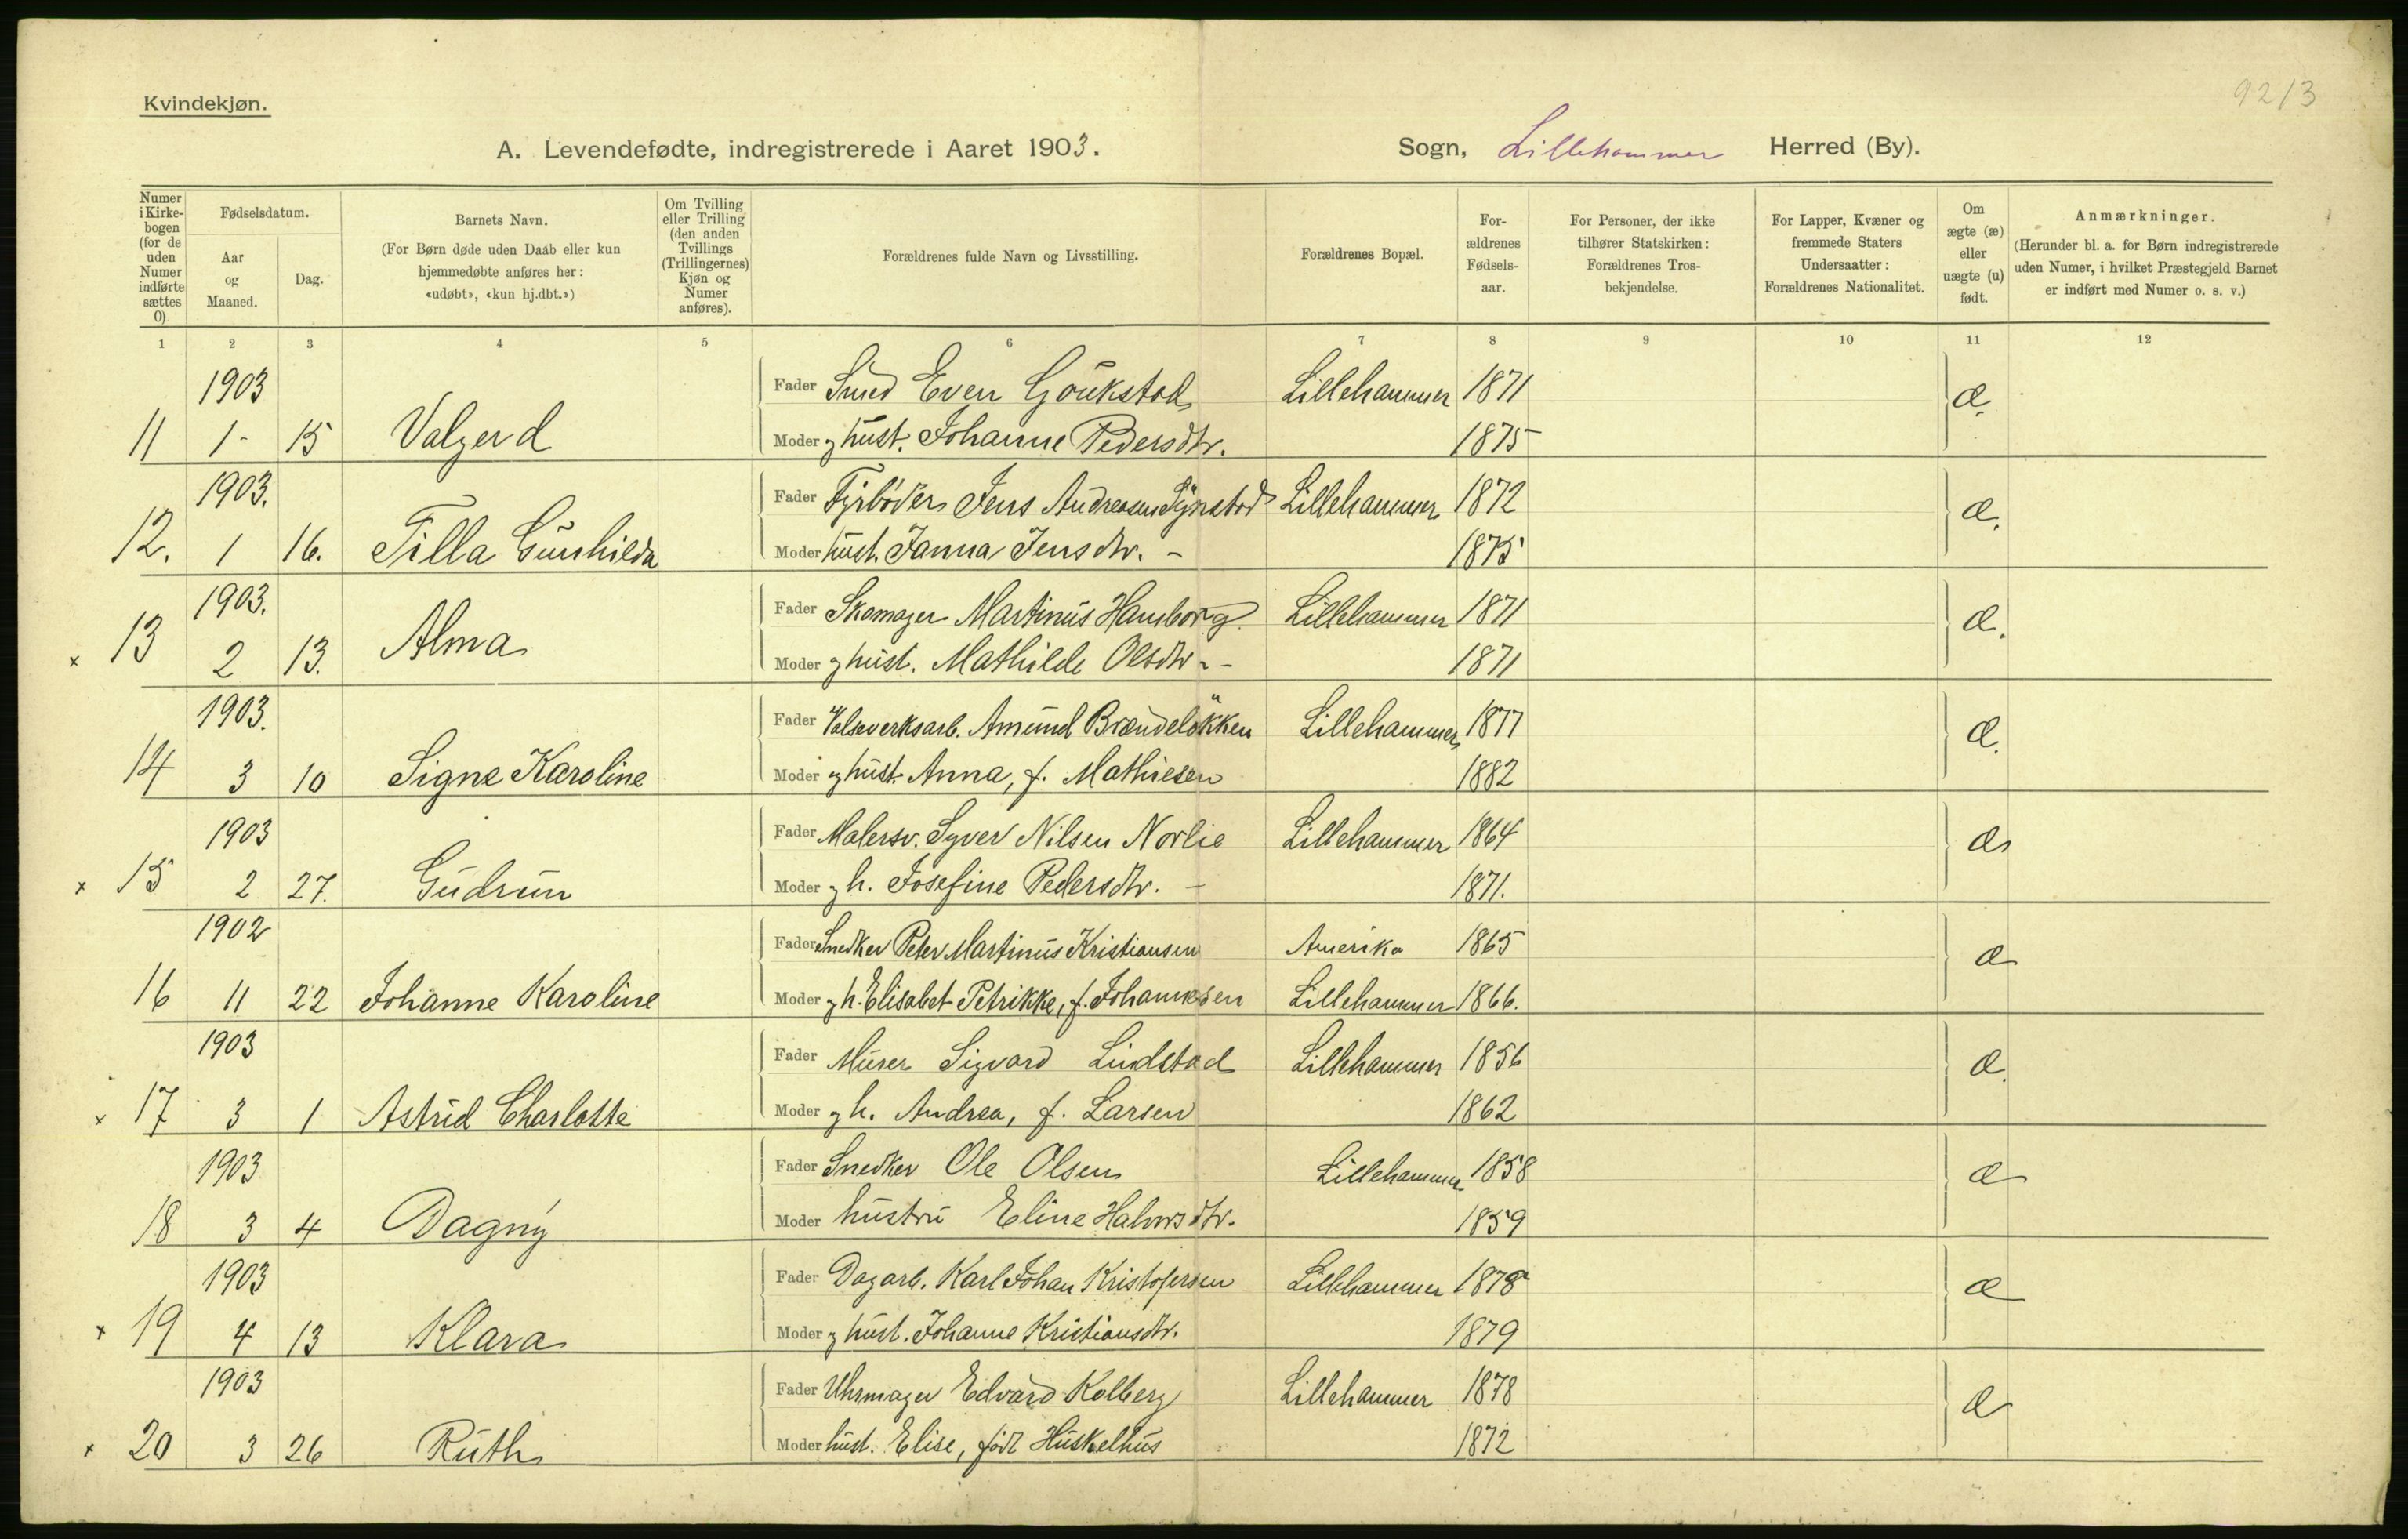 Kvindekjøn.
9213
A. Levendefødte, indregistrerede i Aaret 1903.
Sogn, Lillehammer Herred (By).
Numer i Kirkebogen (for de uden Numer indførte sættes 0)
Fødselsdatum.
Aar og Maaned.
Dag.
Barnets Navn.
(For Børn døde uden Daab eller kun hjemmedøbte anføres her: «udøbt», «kun hj.dbt.»)
Om Tvilling eller Trilling (den anden Tvillings (Trillingernes) Kjøn og Numer anføres).
Forældrenes fulde Navn og Livsstilling.
Forældrenes Bopæl.
Forældrenes Fødselsaar.
For Personer, der ikke tilhører Statskirken: Forældrenes Trosbekjendelse.
For Lapper, Kvæner og fremmede Staters Undersaatter: Forældrenes Nationalitet.
Om ægte (æ) eller uægte (u) født.
Anmærkninger.
(Herunder bl. a. for Børn indregistrerede uden Numer, i hvilket Præstegjeld Barnet er indført med Numer o. s. v.)
1 2 3 4 5 6 7 8 9 10 11 12
1903 Fader Smed Even Gjøukstad Lillehammer 1871 æ.
11 1- 15 Valgerd Moder g hust. Johanne Pedersdtr. 1875
1903. Fader Fyrbøder Jens Andreasen Synstad Lillehammer 1872 æ.
12. 1 16. Tilla Gunhilda Moder hust. Janna Jensdtr. - 1875
1903. Fader Skomager Martinus Hamborg Lillehammer 1871 æ.
x 13 2 13. Alma Moder g hust. Mathilde Olsdtr - 1871
1903. Fader Valseverksarb. Amund Brændeløkken Lillehammer 1877 æ.
14 3 10 Signe Karoline Moder g hust. Anna, f. Mathiesen 1882
1903 Fader Malersv. Syver Nilsen Norlie Lillehammer 1864 æ
x 15 2 27. Gudrun Moder g h. Josefine Pedersdtr. - 1871.
1902 Fader Snedker Peter Martinus Kristiansen Amerika 1865 æ
16 11 22 Johanne Karoline Moder g h. Elisabet Petrikke, f. Johannesen Lillehammer 1866.
1903 Fader Murer Sigvard Lindstad Lillehammer 1856 æ.
x 17 3 1 Astrid Charlotte Moder g h. Andrea, f. Larsen 1862
1903 Fader Snedker Ole Olsen Lillehammer 1858 æ
18 3 4 Dagny Moder hustru Eline Halvorsdtr. 1859
1903 Fader Dagarb. Karl Johan Kristofersen Lillehammer 1878 æ
x 19 4 13 Klara Moder g hust. Johanne Kristiansdtr. 1879
1903 Fader Uhrmager Edvard Kolberg Lillehammer 1878 æ
x 20 3 26 Ruth Moder hust. Elise, født Huskelhus 1872